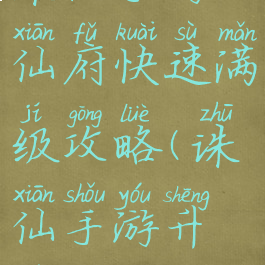 xiān fǔ kuài sù mǎn
仙府快速满
jí gōng lüè zhū
级攻略(诛
xiān shǒu yóu shēng
仙手游升